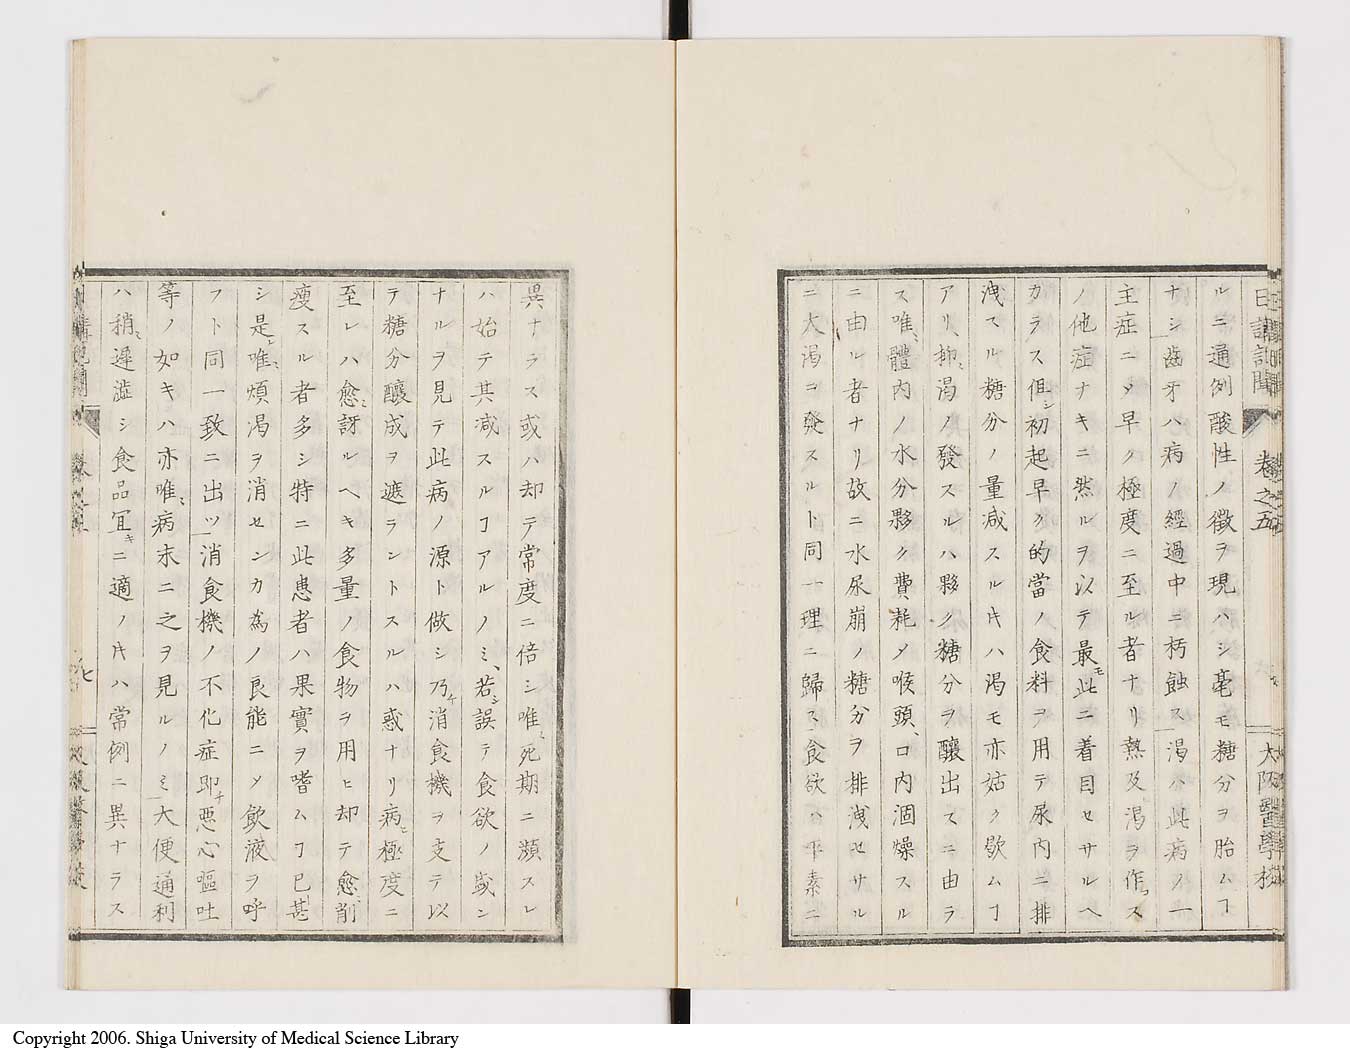 日講記聞 卷之五 大阪醫學校
ルニ通例酸性ノ徴ヲ現ハシ毫モ糖分ヲ胎ムヿ
ナシ齒牙ハ病ノ經過中ニ朽蝕ス渇ハ此病ノ一
主症ニメ早ク極度ニ至ル者ナリ熱及渇ヲ作ス
ノ他症ナキニ然ルヲ以テ最モ此ニ着目セサルヘ
カラス但シ初起早ク的當ノ食料ヲ用テ尿内ニ排
洩スル糖分ノ量减スル𪜈ハ渇モ亦姑ク歇ムヿ
アリ抑ミ渇ノ發スルハ夥ク糖分ヲ釀出スニ由ラ
ス唯ミ體内ノ水分夥ク費耗メ喉頭、口内涸燥スル
ニ由ル者ナリ故ニ水尿崩ノ糖分ヲ排洩セサル
ニ大渇ヲ發スルト同一理ニ歸ス食欲ハ平素ニ
異ナラス或ハ却テ常度ニ倍シ唯ミ死期ニ瀕スレ
ハ始テ其减スルヿアルノミ、若シ誤テ食欲ノ盛ン
ナルヲ見テ此病ノ源ト做シ乃チ消食機ヲ支テ以
テ糖分釀成ヲ遮ラントスルハ惑ナリ病ヒ極度ニ
至レハ愈ミ訝ルヘキ多量ノ食物ヲ用ヒ却テ愈ミ削
瘦スル者多シ特ニ此患者ハ果實ヲ嗜ムヿ已甚
シ是レ唯ミ煩渇ヲ消センカ為ノ良能ニメ飲液ヲ呼
フト同一致ニ出ツ消食機ノ不化症即チ惡心嘔吐
等ノ如キハ亦唯ミ病末ニ之ヲ見ルノミ大便通利
ハ稍ミ遲澁シ食品冝キニ適ノ𪜈ハ常例ニ異ナラス
Copyright 2006. Shiga University of Medical Science Library